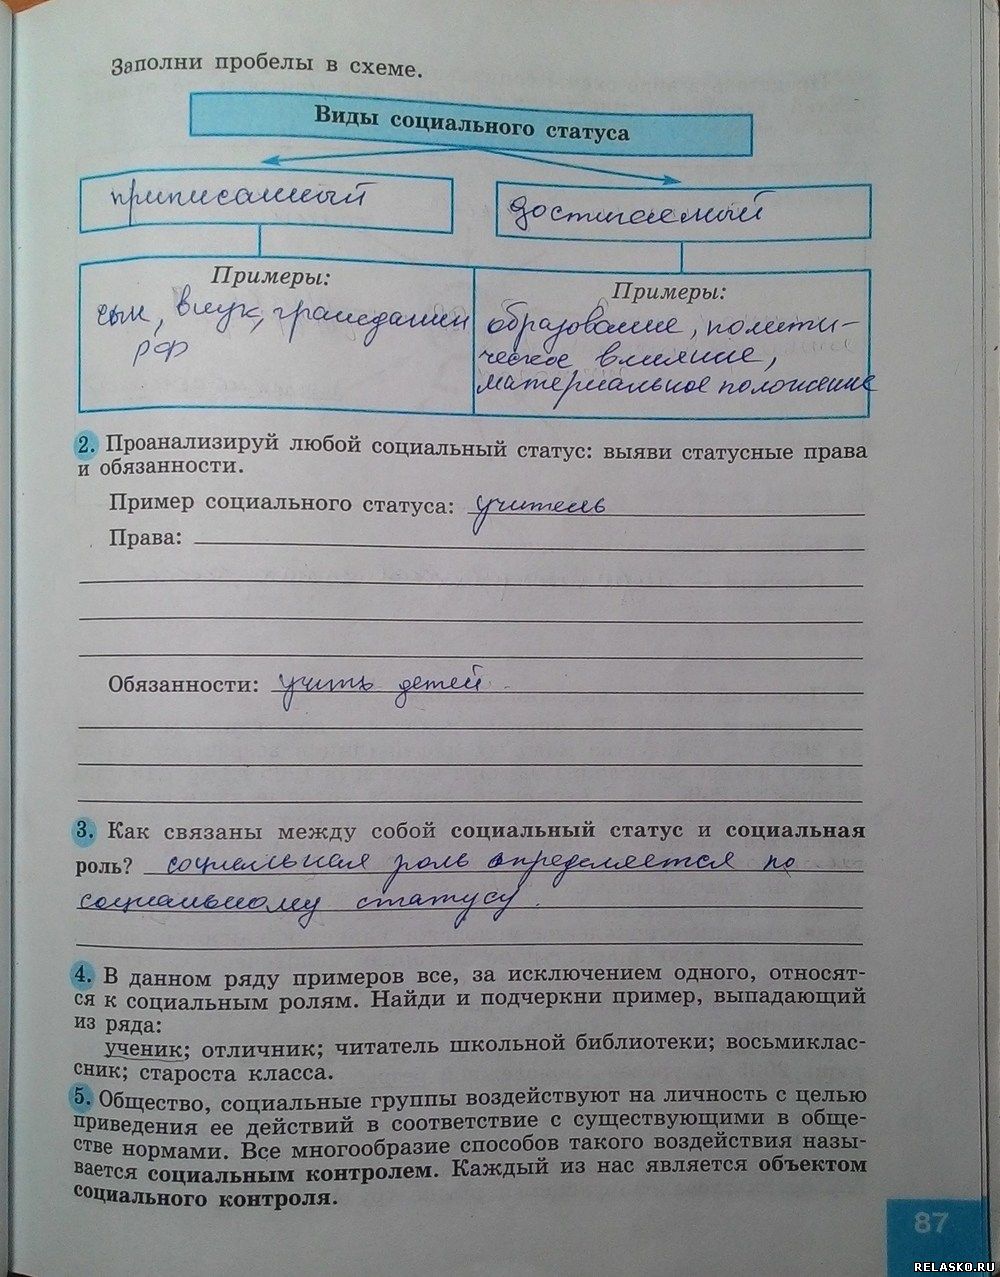 Заполни пробелы в схеме.
Виды социального статуса
приписанный
достигаемый
Примеры:
сын, внук, гражданин
РФ
Примеры:
образование, полити-
ческое влияние,
материальное положение
2. Проанализируй любой социальный статус: выяви статусные права
и обязанности.
Пример социального статуса: учитель
Права:
Обязанности: учить детей.
3. Как связаны между собой социальный статус и социальная
роль? социальная роль определяется по
социальному статусу.
4. В данном ряду примеров все, за исключением одного, относят-
ся к социальным ролям. Найди и подчеркни пример, выпадающий
из ряда:
ученик; отличник; читатель школьной библиотеки; восьмиклас-
сник; староста класса.
5. Общество, социальные группы воздействуют на личность с целью
приведения ее действий в соответствие с существующими в обще-
стве нормами. Все многообразие способов такого воздействия назы-
вается социальным контролем. Каждый из нас является объектом
социального контроля.
87
RELASKO.RU